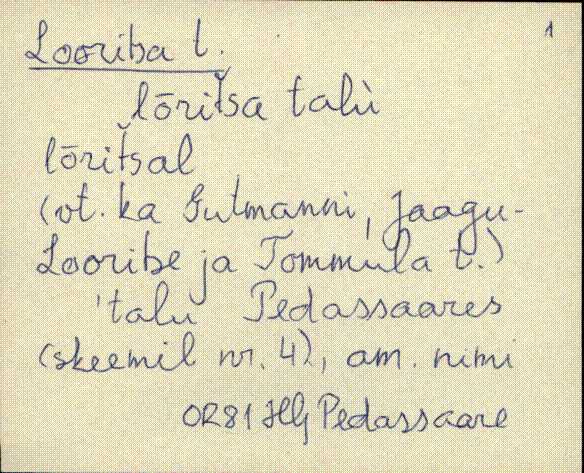 1
Looritsa t.
lōritsa talù
lōritsal
(vt. ka Gutmanni, Jaagu-
Looritse ja Tommula t.)
'talu Pedassaares
(skeemil nr. 4), am. nimi
OR81 HG Pedassaare